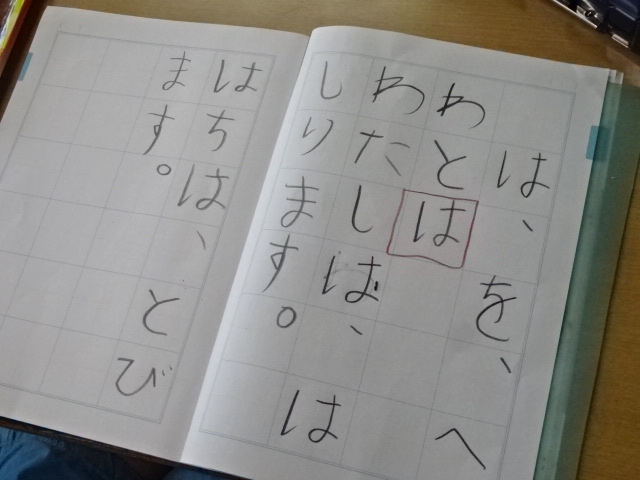 は、を、へ
わとは
わたしは、は
しります。
はちは、とび
ます。